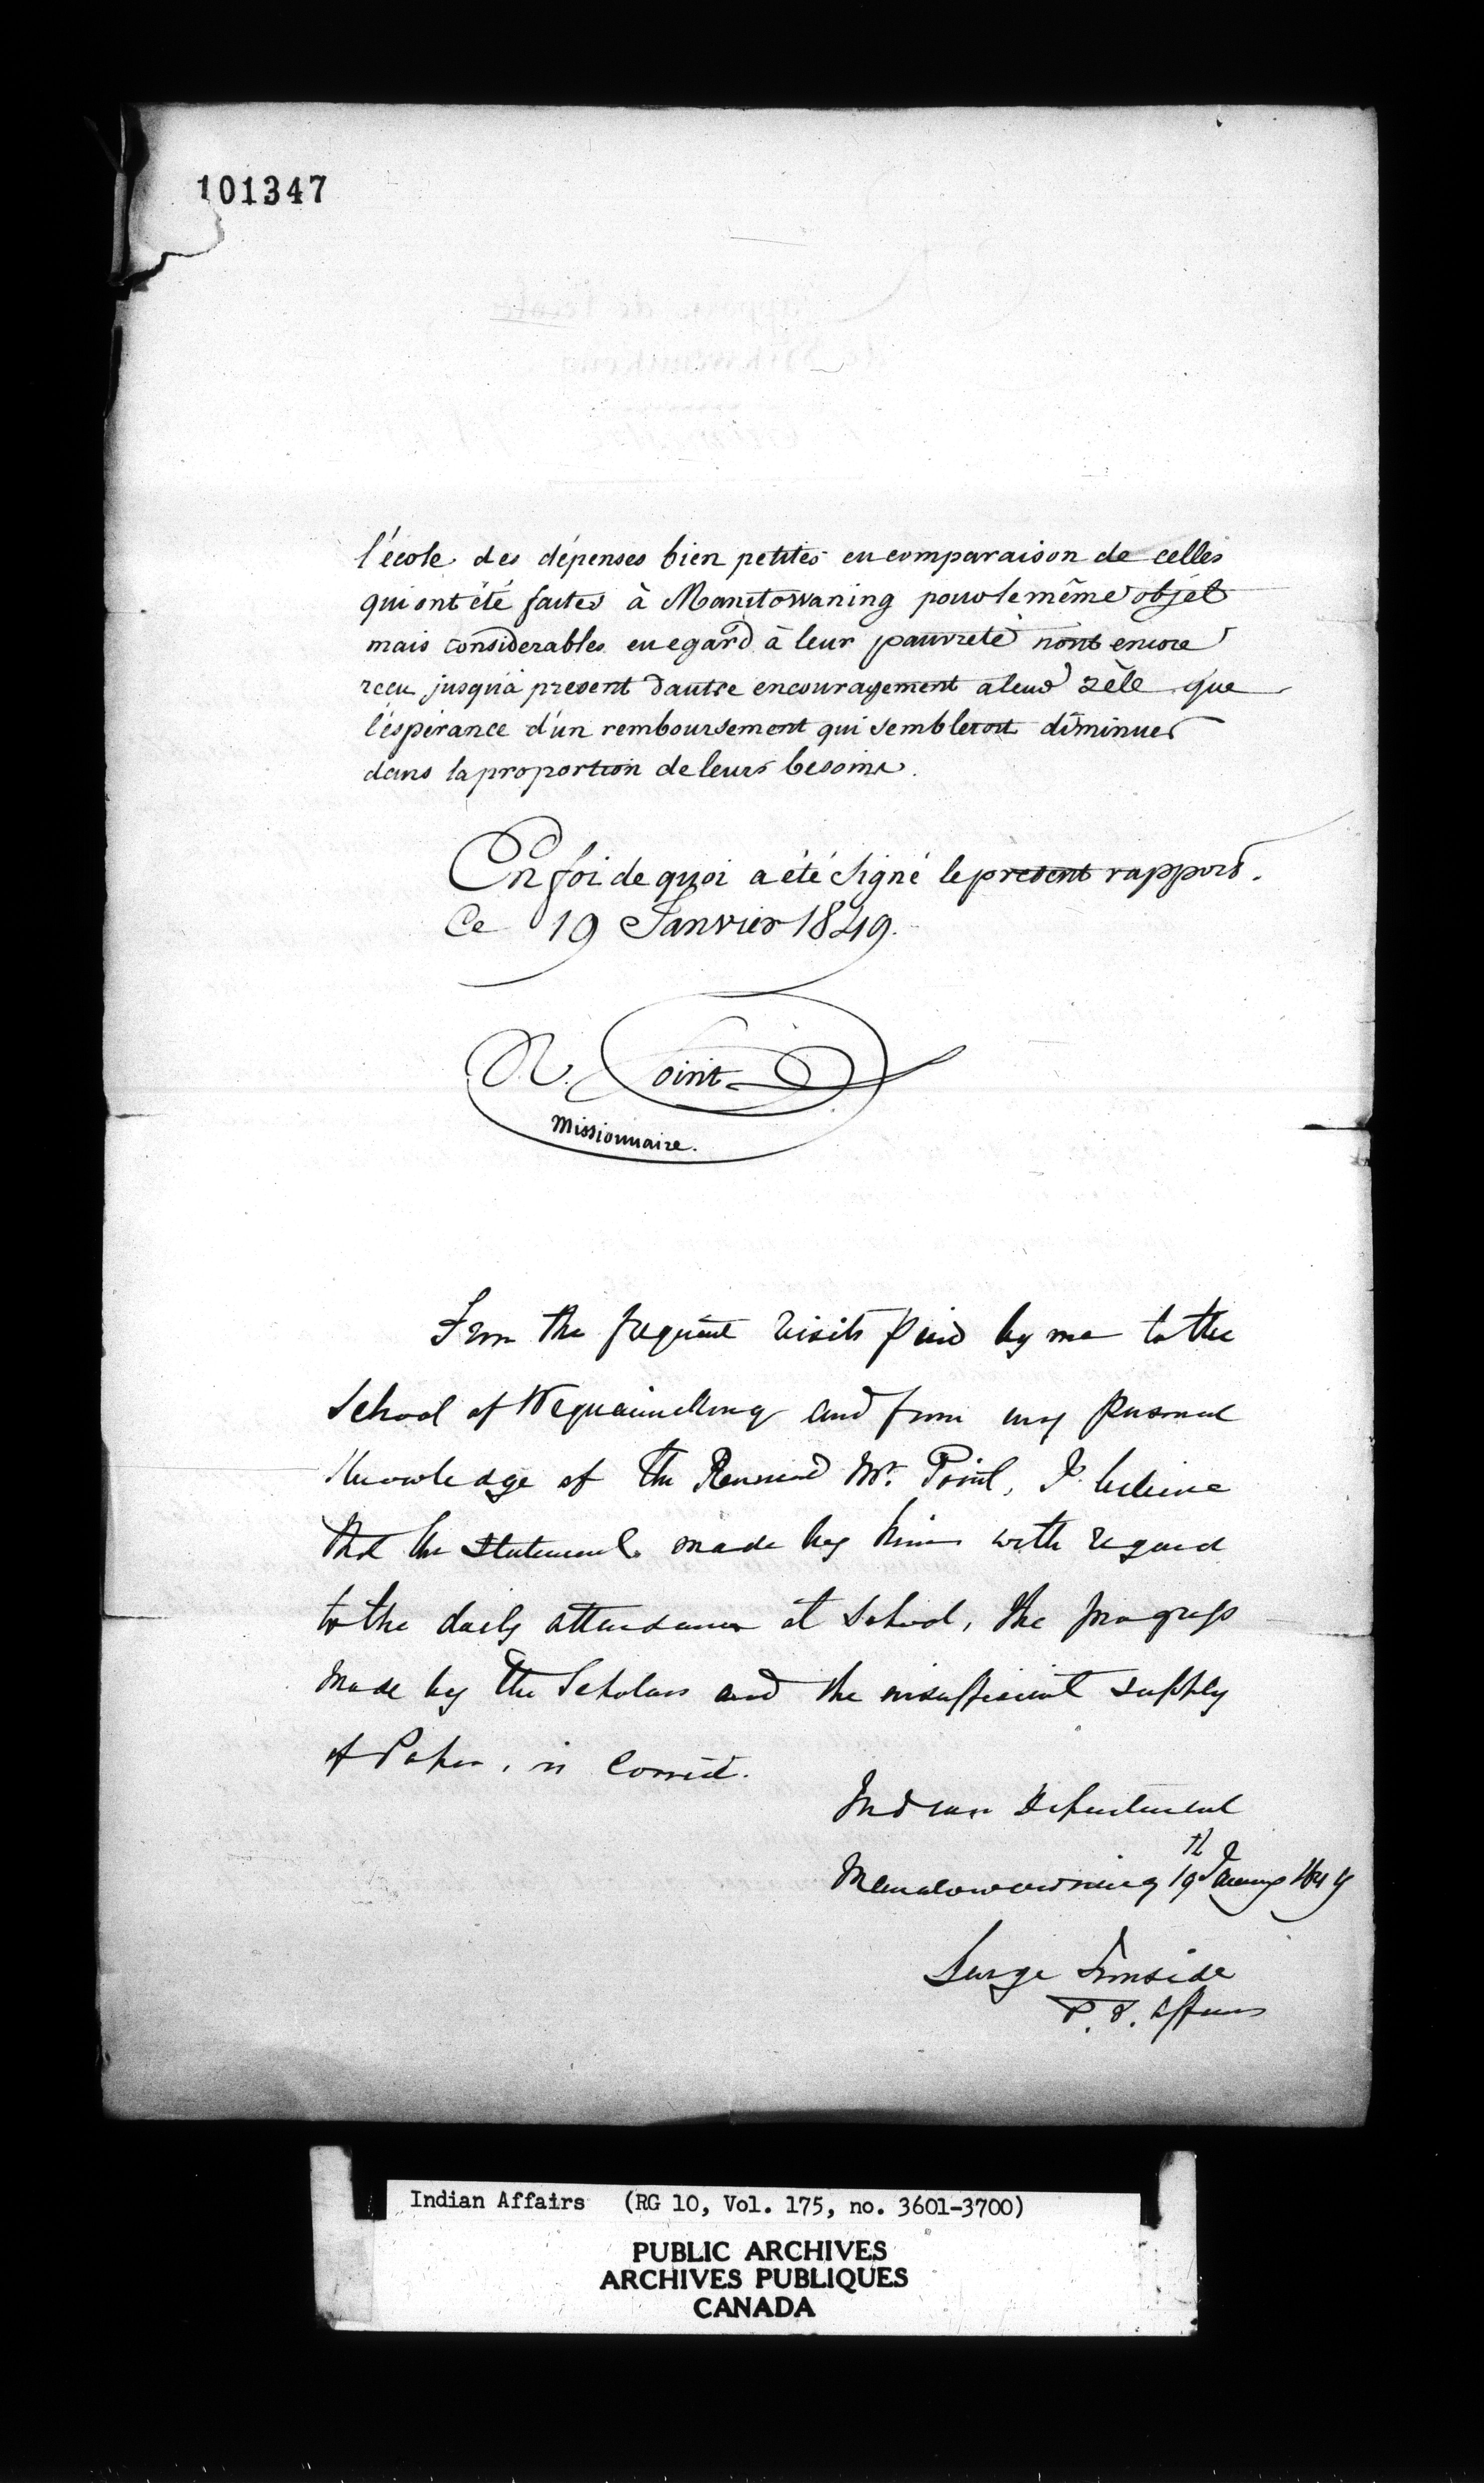 101347
l'école des dépenses bien petites en comparaison de celles
qui ont été faites à Manitowaning pour le même objet
mais considerables en egard à leur pauvreté n'ont encore
reçu jusqu'à present d'autre encouragement a leur zèle que
l'éspérance d'un remboursement qui sembleroit diminuer
dans la proportion de leurs besoins.
En foi de quoi a été signé le present rapport.
Ce 19 Janvier 1849.
Point
Missionnaire.
From the frequent visits paid by me to the
School of and from my personal
Knowledge of the Reverend Mr. Point, I believe
that the statement made by him with regard
to the daily attendance at School, the progress
made by the Scholars and the insufficient supply
of Paper, is Correct.
Indian Department
19th January 1849
George Ironside
Affairs
Indian Affairs (RG 10, Vol. 175, no. 3601-3700)
PUBLIC ARCHIVES
ARCHIVES PUBLIQUES
CANADA